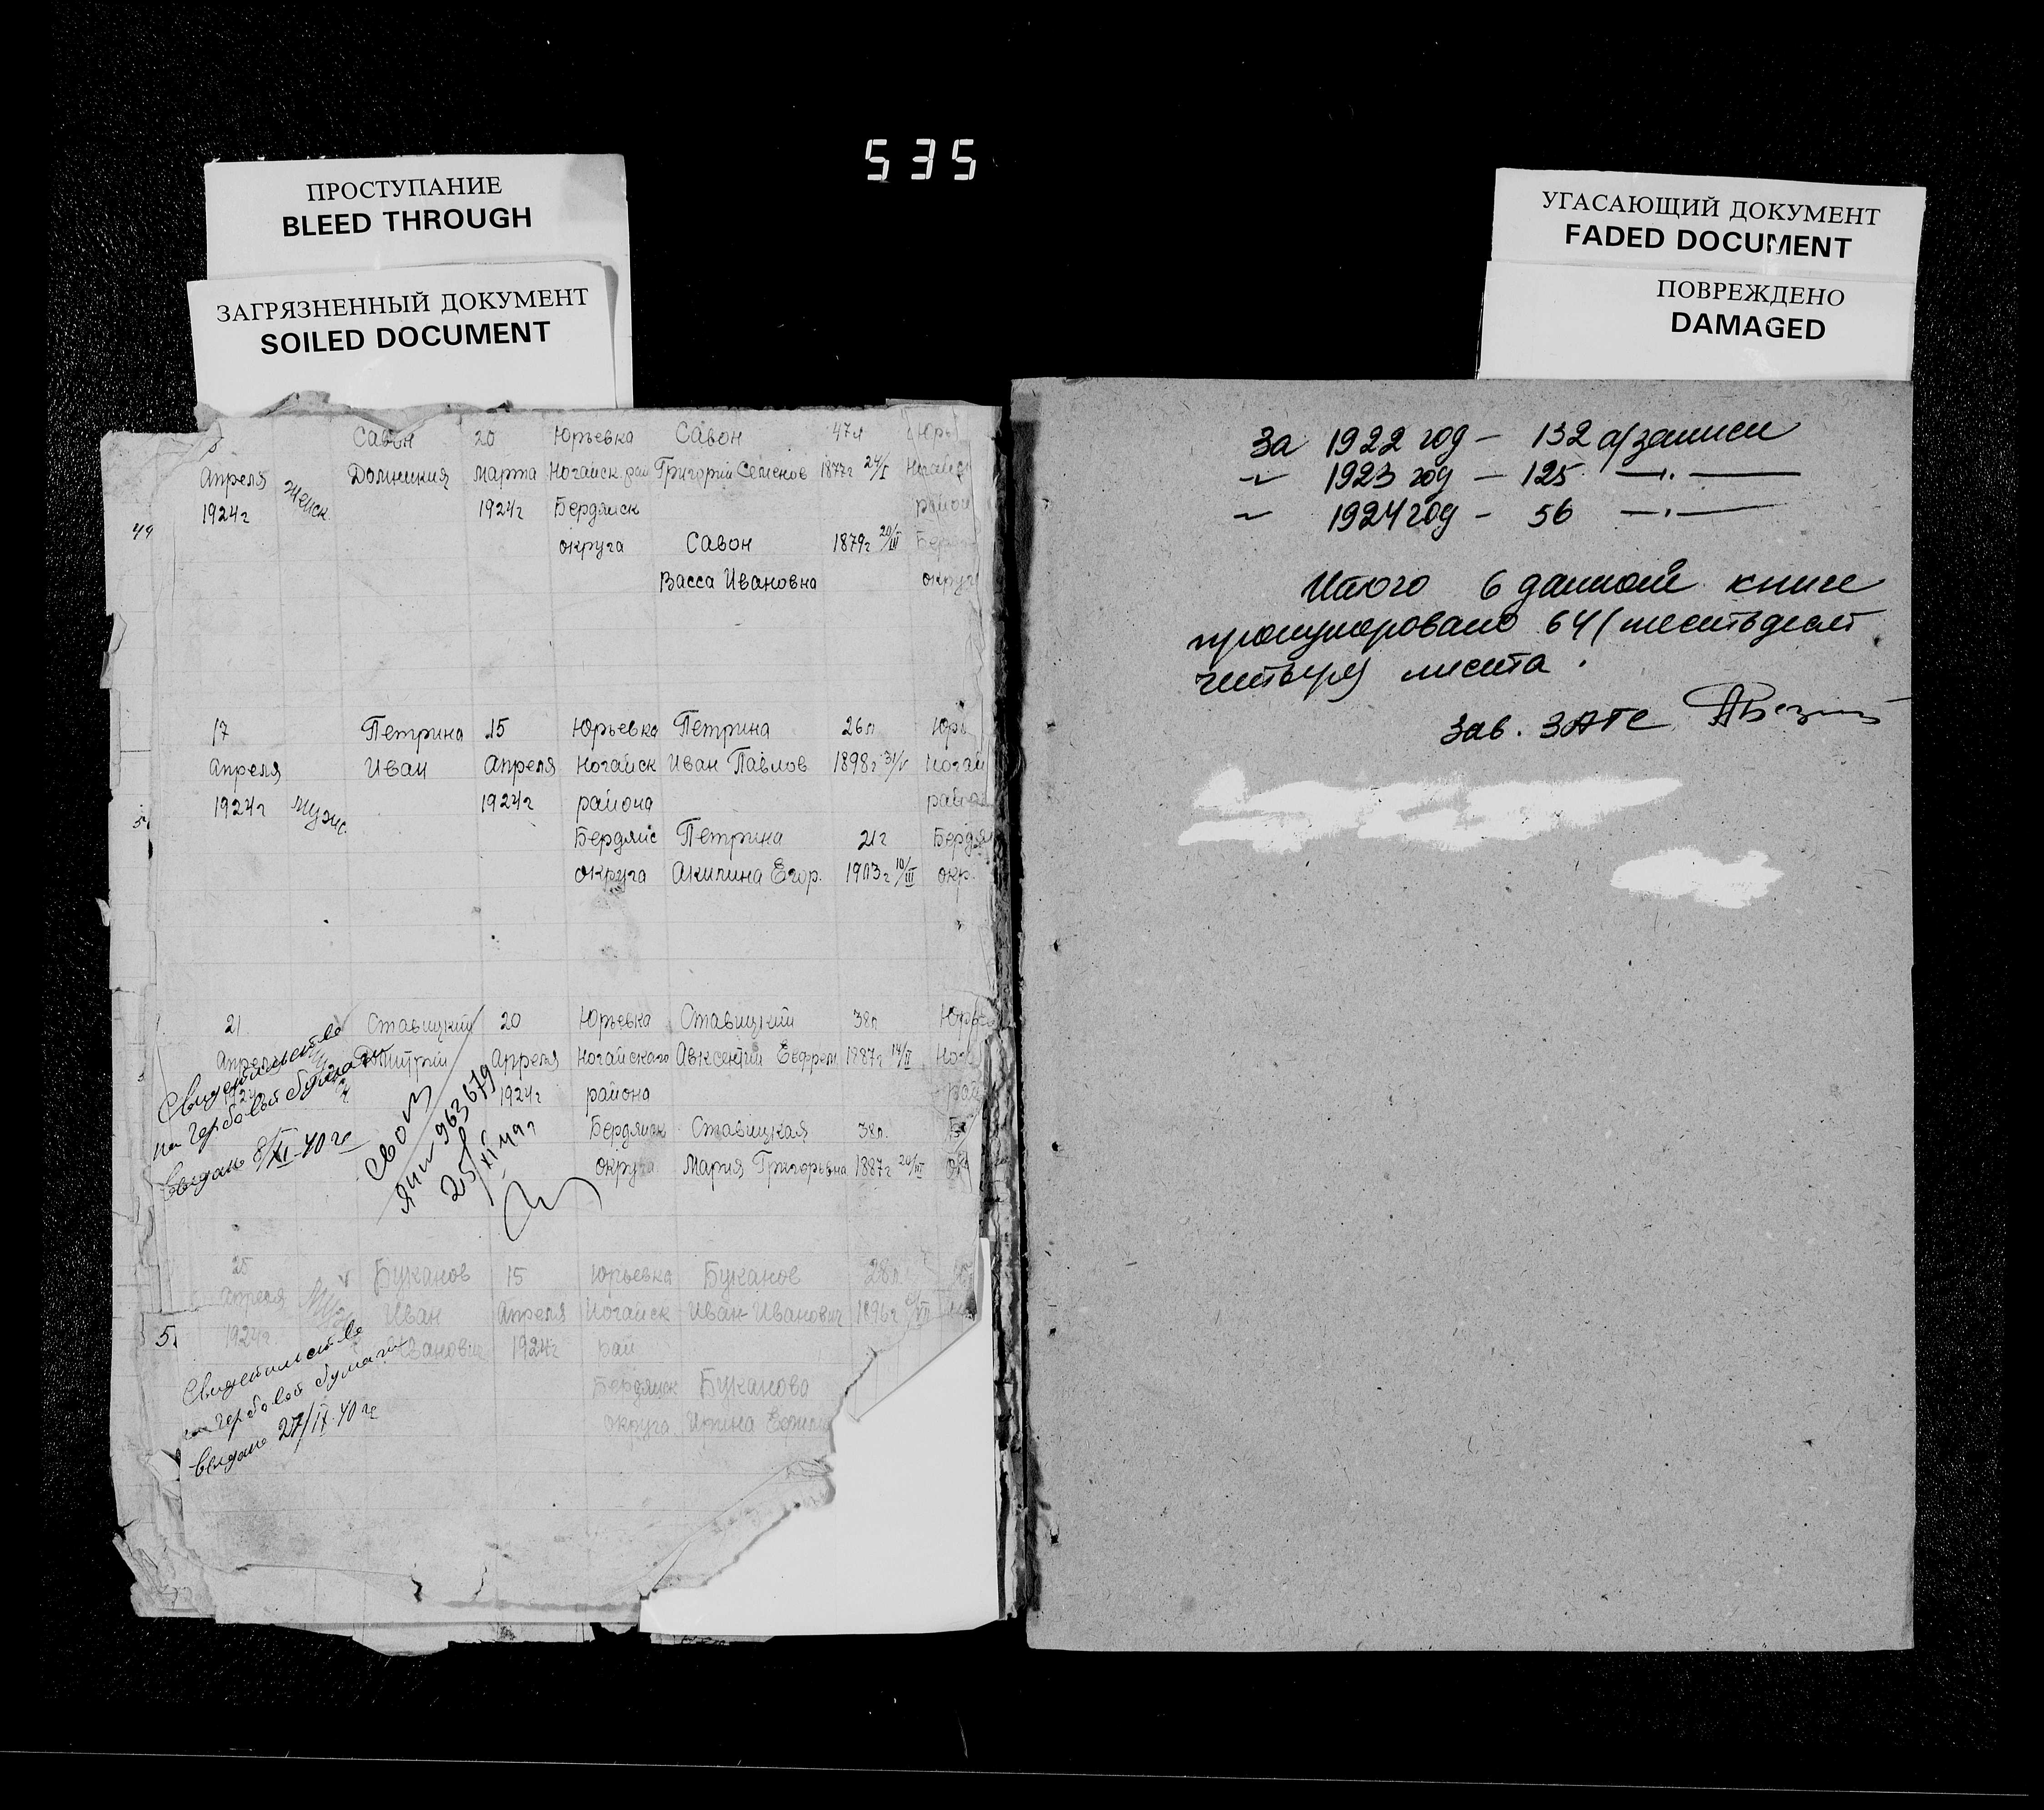 535
ПРОСТУПАНИЕ
BLEED THROUGH
ЗАГРЯЗНЕННЫЙ ДОКУМЕНТ
SOILED DOCUMENT
УГАСАЮЩИЙ ДОКУМЕНТ
FADED DOCUMENT
ПОВРЕЖДЕНО
DAMAGED
Савон 20 Юрьевка Савон 47л
Апреля женск. Домникия марта Ногайск рай Григорий Семенов 1877г 24/I
1924г 1924г Бердянск район
49 округа Савон 1879г
Васса Ивановна округ
17 Петрина 15 Юрьевка Петрина 26л Юрь
Апреля Иван Апреля Ногайск Иван Павлов 1898г 31/V Ногай
1924г мужс. 1924г района
Бердянс Петрина 21г Бердян
округа Акилина Егор. 1903г 10/III окр.
21 Ставицкий 20 Юрьевка Ставицкий 38л
Апреля Дмитрий Апреля Ногайского Авксентий Евфрем 1887г 14/II
1924г района
Бердянск Ставицкая 38л.
округа Мария Григорьевна 1887г 20/III
Свидетельство
на гербовой бумаге
выдано 8/XI-40 г
963679
25/XI 49г
25 Буканов 15 Юрьевка Буканов 28л
Апреля Иван Апреля Ногайск Иван Иванович 1896г
1924г Иванович 1924г рай
Бердянск Буканова
округа Ирина
5
Свидетельство
на гербовой бумаге
выдано 27/IX-40 г
За 1922 год - 132 а/записи
" 1923 год - 125 —"—
" 1924 год - 56 —"—
Итого в данной книге
пронумеровано 64 (шестьдесят
четыре) листа.
Зав. ЗАГС